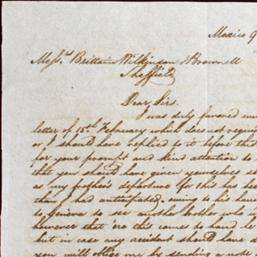 Mexico 9
Mess.rs Brittain Wilkinson & Brownell
Sheffield
Dear Sirs.
I was duly favored
letter of 15th February which does not requi
or I should have replied to it before this
for your prompt and kind attention to
that you should have given yourselves
as my brother's departure for this has be
than I had anticipated, owing to his hav
to Genova to see another brother who i
however that ere this comes to hand he
but in case any accident should have d
you will oblige me by sending a note